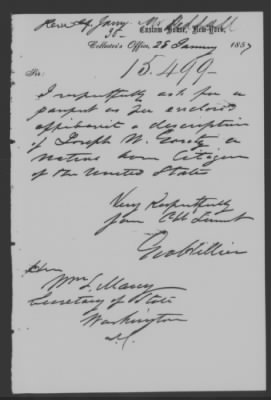 Custom House, New-York,
Collector's Office, 28 January 1857
15.499
Sir:
I respectfully ask for a
passport as per enclosed
affidavit & description
of Joseph W.
native born Citizen
of the United States
Very Respectfully
your Obt Servt
Hon
Wm L. Marcy
Secretary of State
Washington